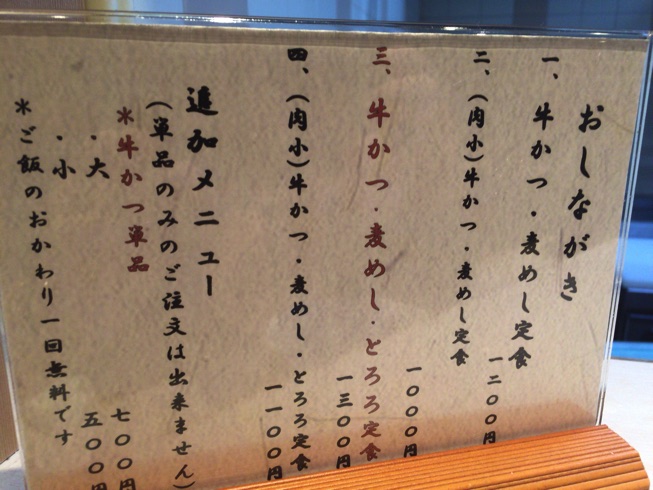 おしながき
一、牛かつ・麦めし定食
一二〇〇円
二、(肉小)牛かつ・麦めし定食
一〇〇〇円
三、牛かつ・麦めし・とろろ定食
一三〇〇円
四、(肉小)牛かつ・麦めし・とろろ定食
一一〇〇円
追加メニュー
(単品のみのご注文は出来ません)
*牛かつ単品
・大 七〇〇円
・小 五〇〇円
*ご飯のおかわり一回無料です